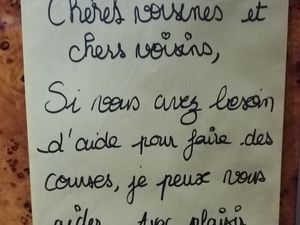 Chères voisines et
chers voisins,
Si vous avez besoin
d'aide pour faire des
courses, je peux vous
aider. Avec plaisir